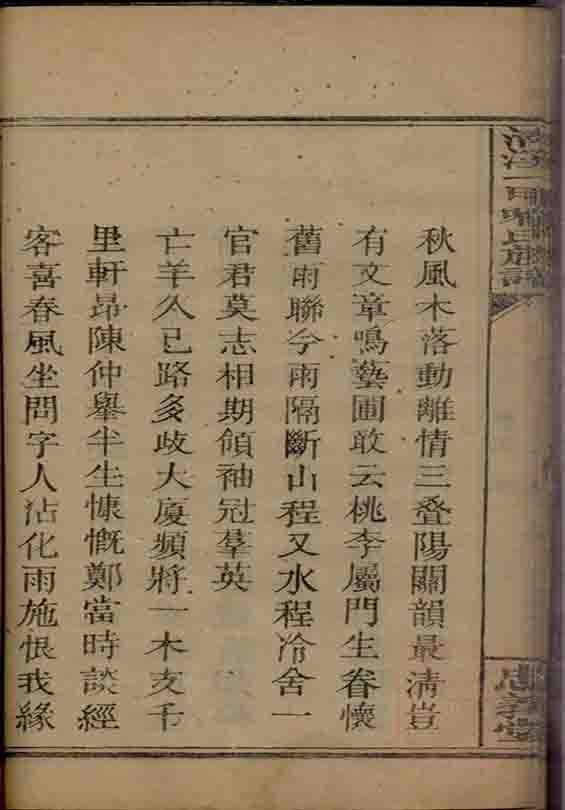 氏族譜
忠義堂
秋風木落動離情三叠陽關韻最清豈
有文章鳴藝圃敢云桃李屬門生眷懷
舊雨聯今雨隔斷山程又水程冷舍一
官君莫志相期領袖冠羣英
亡羊久已路多歧大廈頻將一木支千
里軒昂陳仲舉半生慷慨鄭當時談經
客喜春風坐問字人沾化雨施恨我緣